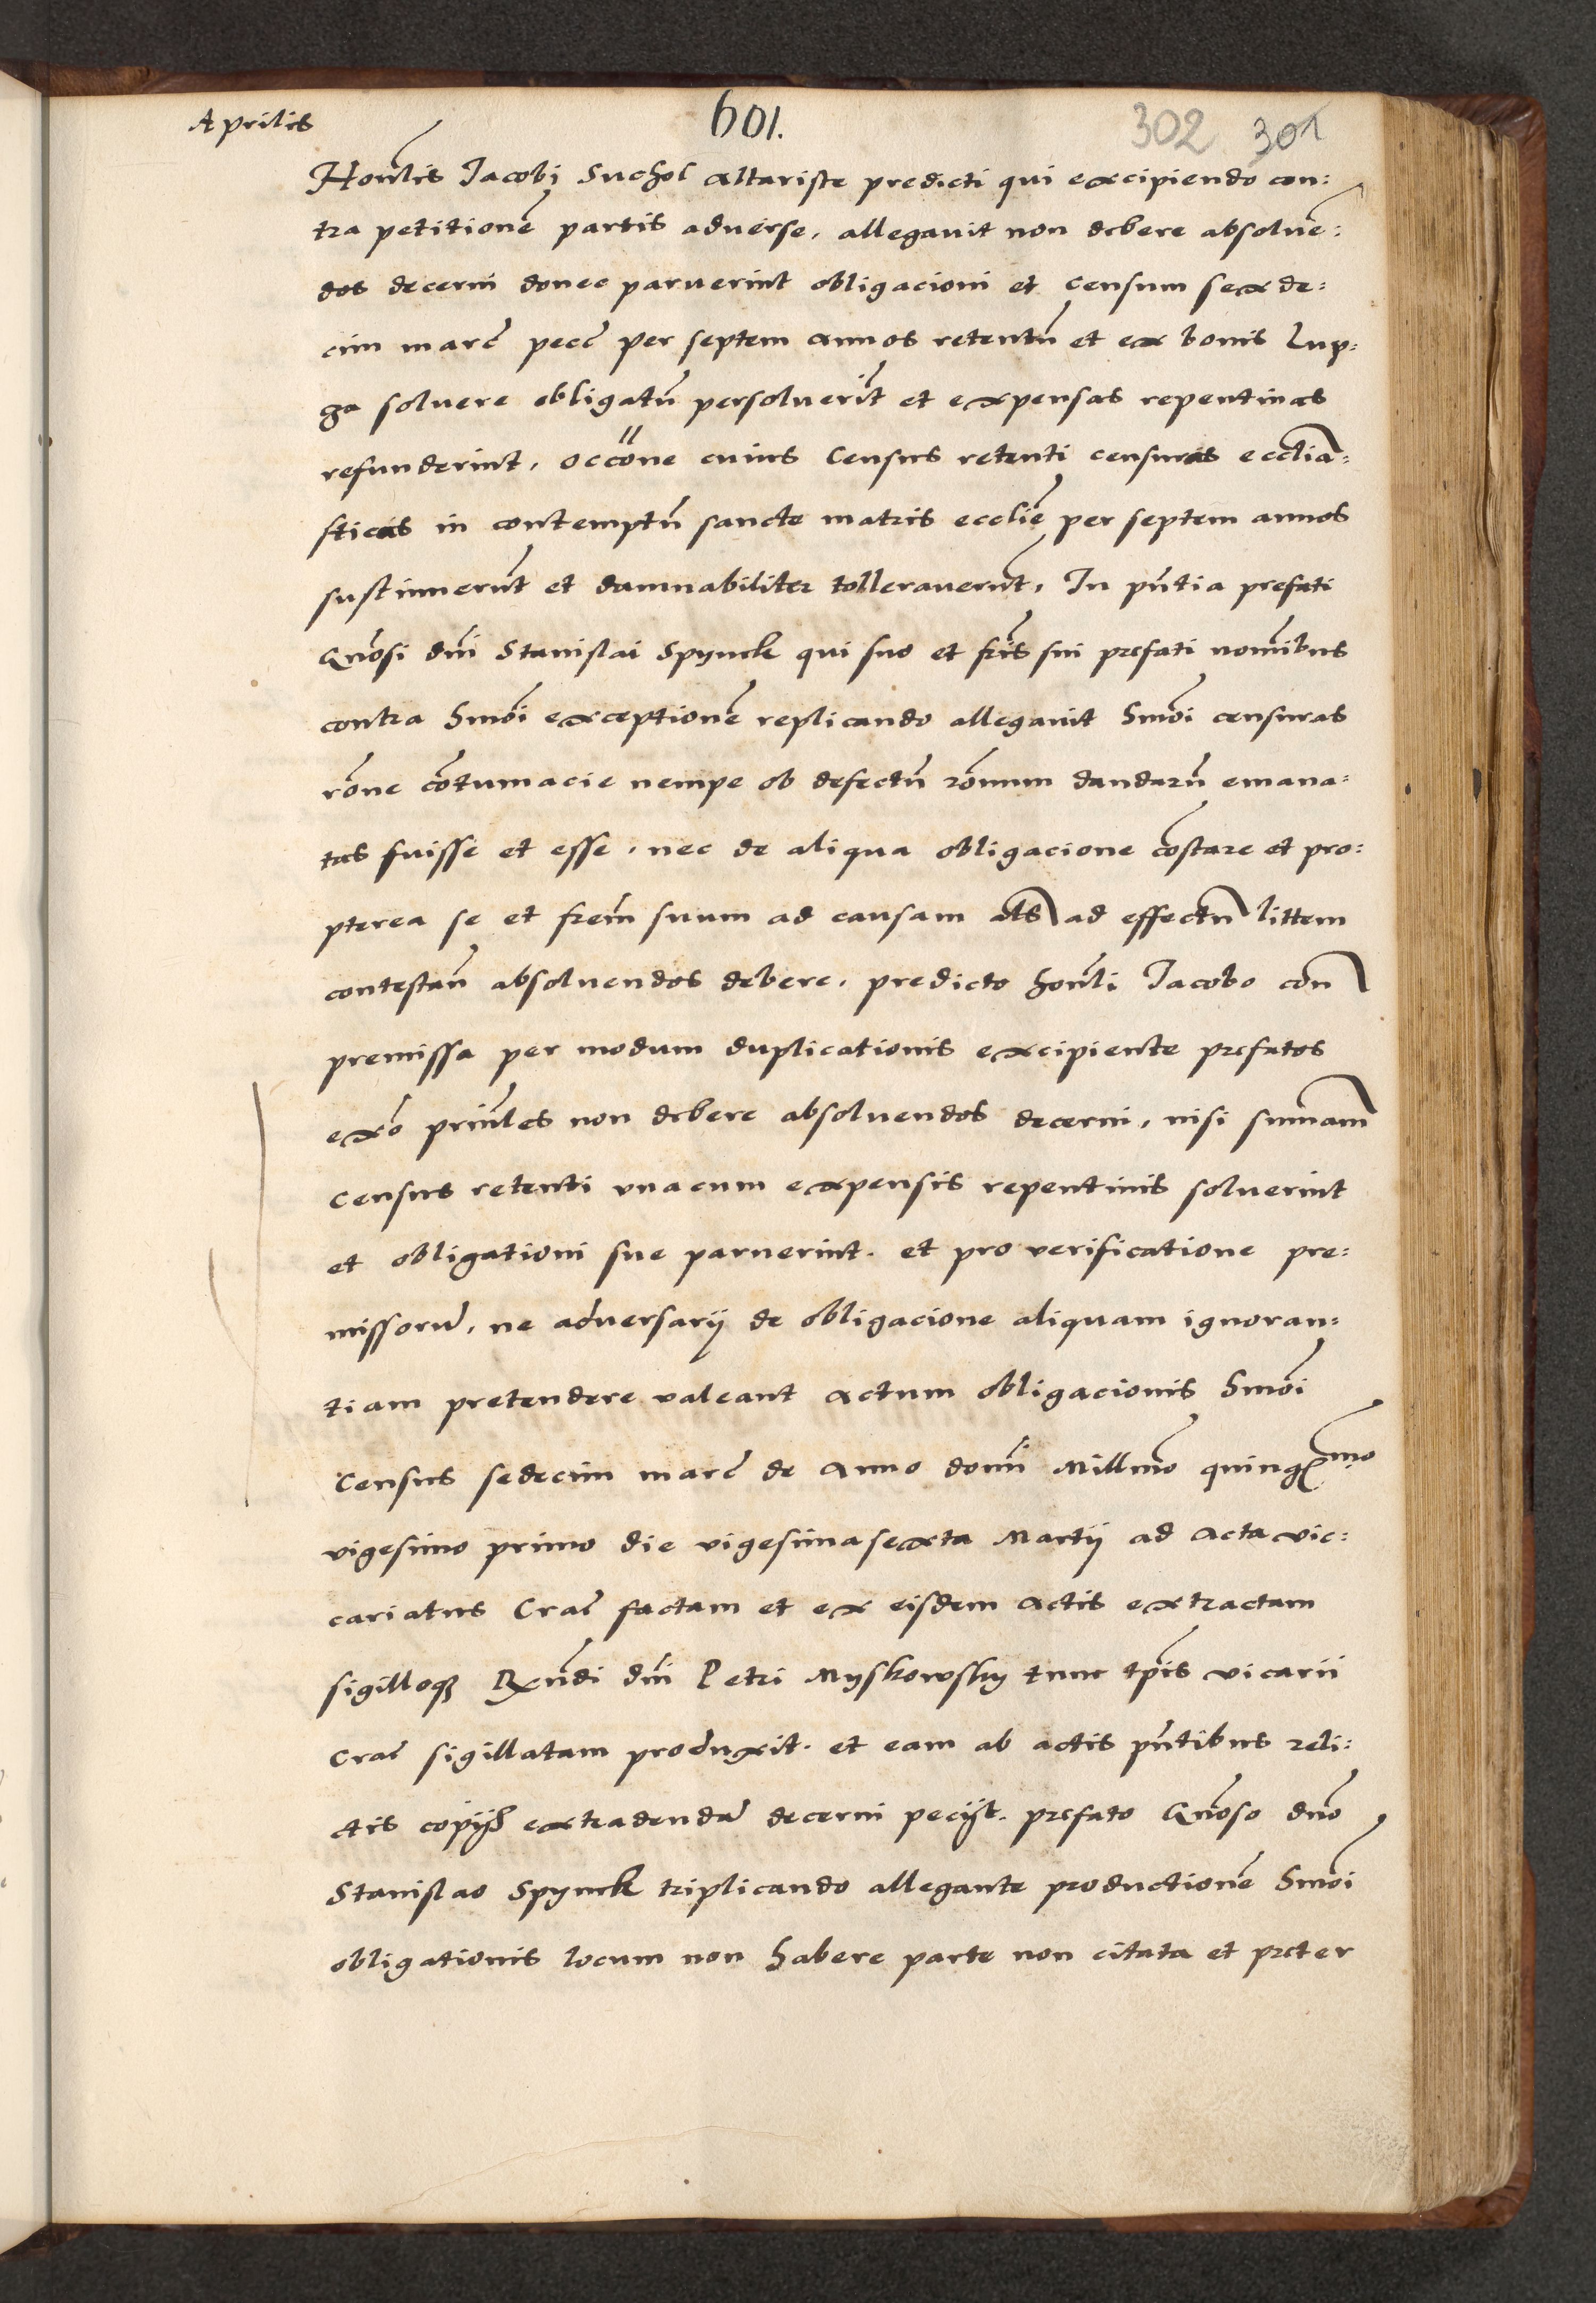 Aprilis
601.
302 301
Hon̄lis Jacobi Suchol altariste predicti qui excipiendo con:
tra petitionē partis adverse, allegavit non debere absolvē:
dos decerni donec paruerint obligacioni et censum sexde:
cim marc̄ pecc̄ per septem annos retentū et ex bonis Lup:
ga solvere obligatū persolverīt et expensas repentinas
refunderint, occōne cuius census retenti censuras ecclia:
sticas in contemptū sancte matris ecclīe per septem annos
sustinuerūt et damnabiliter tolleraverūt, In pn̄tia prefati
Gnōsi dnī Stanislai Spynek qui suo et frīs sui prefati nomībus
contra hmōi exceptionē replicando allegavit hmōi censuras
rōne cōtumacie nempe ob defectū rōnum dandarū emana:
tas fuisse et esse, nec de aliqua obligacione cōstare et pro:
pterea se et frēm suum ad causam als ad effectū littem
contestan̄ absolvendos debere, predicto honīli Jacobo con
premissa per modum duplicationis excipiente prefatos
exōs prin̄les non debere absolvendos decerni, nisi sum̄am
census retenti unacum expensis repentinis solverint
et obligationi sue paruerint. et pro verificatione pre:
missorū, ne adversarij de obligacione aliquam ignoran:
tiam pretendere valeant actum obligacionis hmōi
census sedecim marc̄ de Anno domī Millmō quingmo
vigesimo primo die vigesimasexta Martij ad acta vic:
cariatus Crac̄ factam et ex eisdem actis extractam
sigilloq Rn̄di dnī Petri Myskowsky tunc tp̄is vicarii
Crac̄ sigillatam produxit. et eam ab actis pn̄tibus reli:
ctis copijs extradendā decerni pecijt. prefato Gnōso dnō
Stanislao Spynek triplicando allegante productionē hmōi
obligationis locum non habere parte non citata et preter